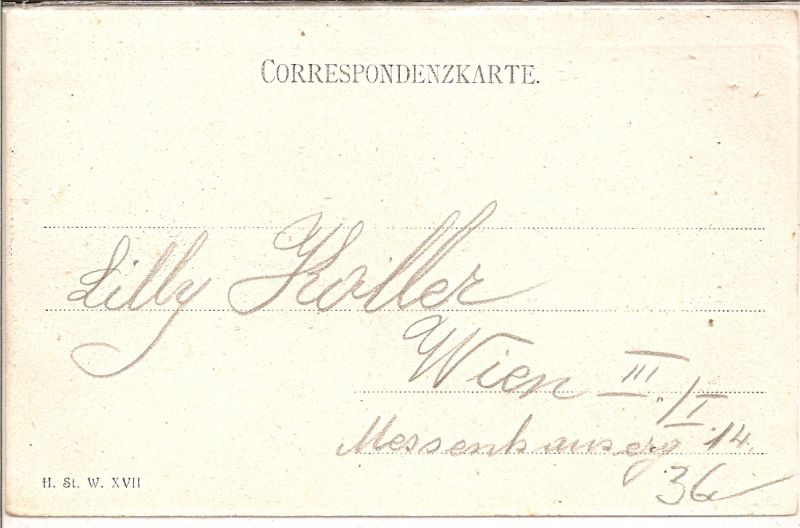 CORRESPONDENZKARTE.
Lilly Koller
Wien III./I.
Messenhauserg 14.
36
H. St. W. XVII